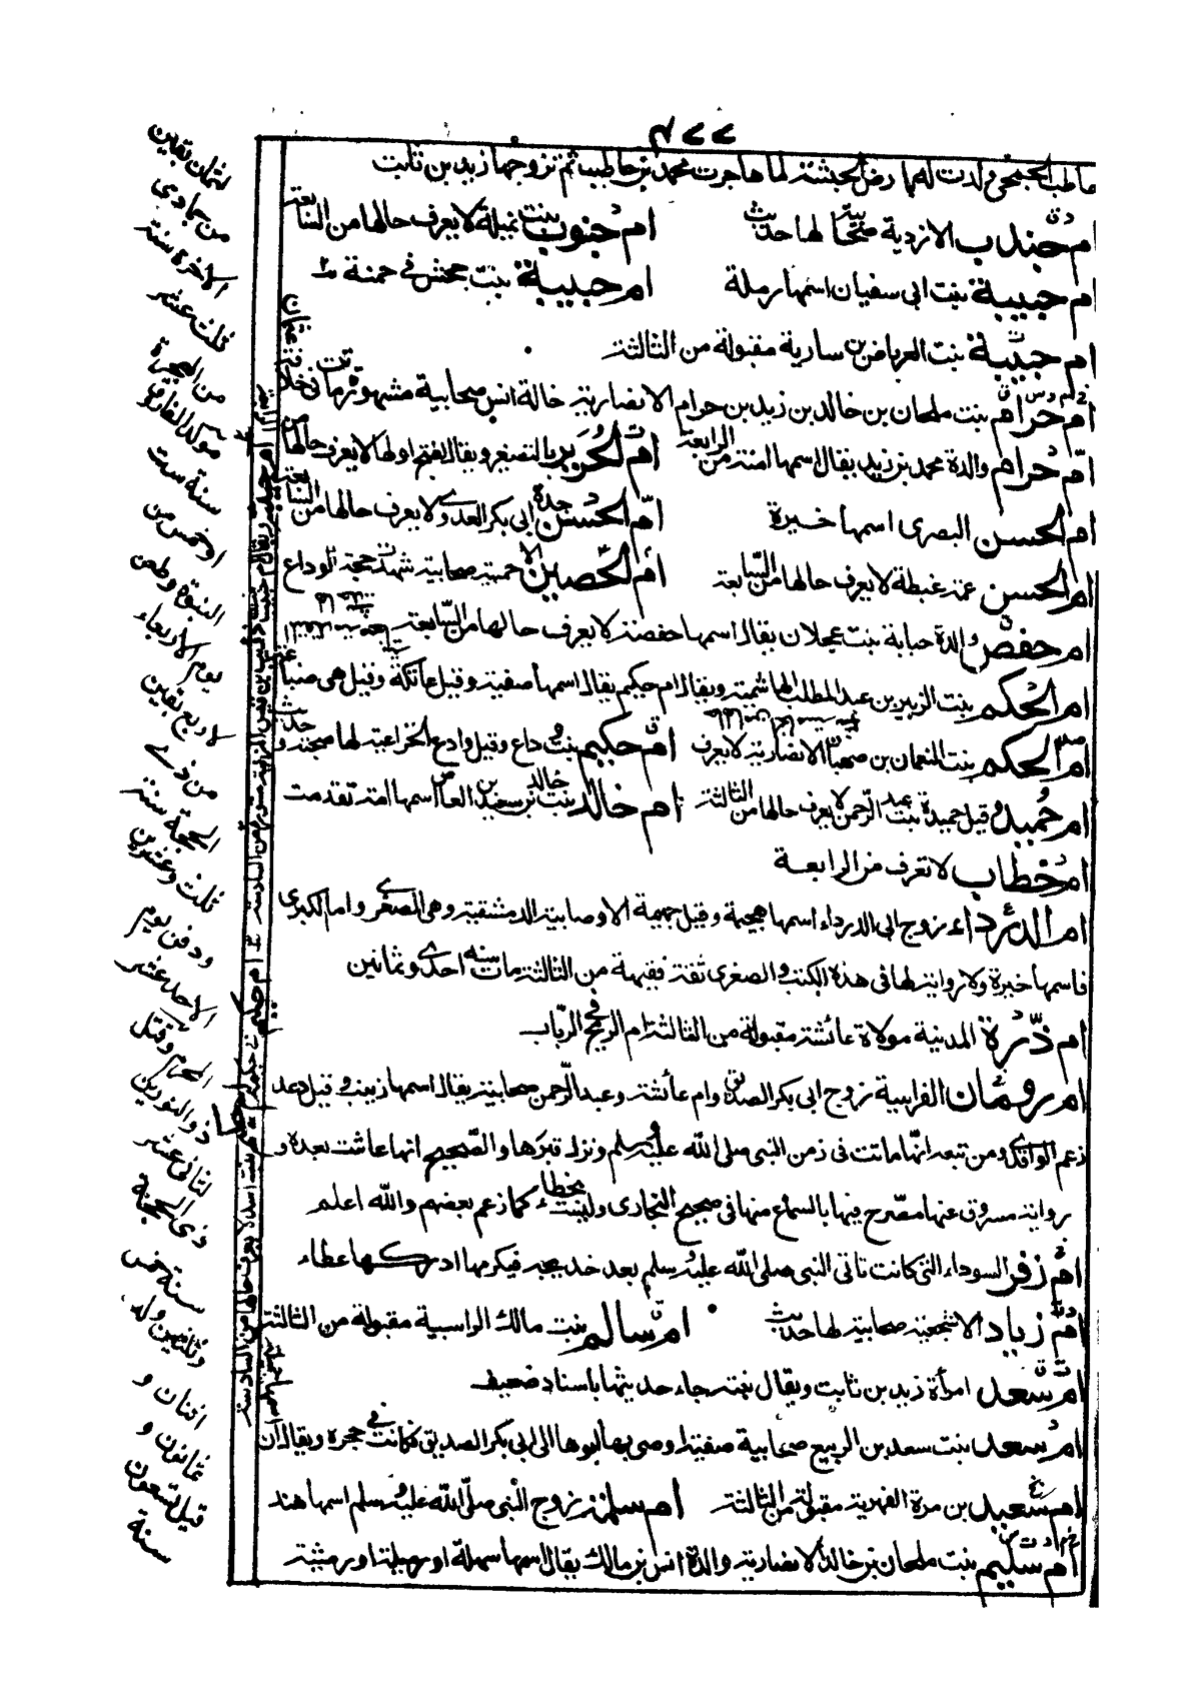 حاطب الجمحى ولدت له بارض الحبشة لما هاجرت محمد بن حاطب ثم تزوجها زيد بن ثابت
ام جندب الازدية صحابية لها حديث ام جنوب بنت نميلة لا يعرف حالها من السابعة
ام حبيبة بنت ابى سفيان اسمها رملة ام حبيبة بنت جحش فى حمنة
ام حبيبة بنت العرباض بن سارية مقبولة من الثالثة
ام حرام بنت ملحان بن خالد بن زيد بن حرام الانصارية خالة انس صحابية مشهورة ماتت فى خلافة عثمان
ام حرام والدة محمد بن زيد يقال اسمها امنة من الرابعة ام الحرير بالتصغير ويقال بفتح اولها لا يعرف حالها من السابعة
ام الحسن البصرى اسمها خيرة ام الحسن جدة ابى بكر العدوى لا يعرف حالها من السابعة
ام الحسن عن غبطة لا يعرف حالها من السابعة ام الحصين الاحمسية صحابية شهدت حجة الوداع
ام حفص والدة حبابة بنت عجلان يقال اسمها حفصة لا يعرف حالها من السابعة
ام الحكم بنت الزبير بن عبد المطلب الهاشمية ويقال ام حكيم يقال اسمها صفية وقيل عاتكة وقيل هى ضباعة
ام الحكم بنت النعمان بن صهبان الانصارية لا يعرف ام حكيم بنت وداع وقيل وادع الخزاعية لها صحبة وحديث
ام حميد وقيل حميدة بنت عبد الرحمن لا يعرف حالها من الثالثة ام خالد بنت خالد بن سعيد بن العاص اسمها امة تقدمت
ام خطاب لا تعرف من الرابعة
ام الدرداء زوج ابى الدرداء اسمها هجيمة وقيل جهيمة الاوصابية الدمشقية وهى الصغرى واما الكبرى
فاسمها خيرة ولا رواية لها فى هذه الكتب والصغرى ثقة فقيهة من الثالثة مات سنة احدى وثمانين
ام ذرة المدنية مولاة عائشة مقبولة من الثالثة ام الرايح الرباب
ام رومان الفراسية زوج ابى بكر الصديق وام عائشة وعبد الرحمن صحابية يقال اسمها زينب وقيل دعد
زعم الواقدى ومن تبعه انها ماتت فى زمن النبى صلى الله عليه وسلم ونزل قبرها والصحيح انها عاشت بعده و
رواية مسروق عنها مصرح فيها بالسماع منها فى صحيح البخارى وليست بخطاء كما زعم بعضهم والله اعلم
ام زفر السوداء التى كانت تاتى النبى صلى الله عليه وسلم بعد خديجة فيكرمها ادركها عطاء
ام زياد الاشجعية صحابية لها حديث ام سالم بنت مالك الراسبية مقبولة من الثالثة
ام سعد امرأة زيد بن ثابت ويقال بنته جاء حديثها باسناد ضعيف
ام سعد بنت سعد بن الربيع صحابية صغيرة اوصى بها ابوها الى ابى بكر الصديق فكانت فى حجره ويقال ان اسمها جميلة
ام سعيد بن مرة الفهرية مقبولة من الثالثة ام سلمة زوج النبى صلى الله عليه وسلم اسمها هند
ام سليم بنت ملحان بن خالد الانصارية والدة انس بن مالك يقال اسمها سهلة او رميلة او رميثة
لثمان بقين
من جمادى
الاخرة سنة
ثلث عشر
من الهجرة
مولد الفاروق
سنة ست
او خمس من
النبوة وطعن
يوم الاربعاء
لاربع بقين
من ذى
الحجة سنة
ثلث وعشرين
ودفن يوم
الاحد عشر
المحرم وقتل
ذو النورين
لثانى عشر
ذى الحجة
سنة خمس
وثلثين وله
اثنان و
ثمانون و
قيل تسعون
سنة